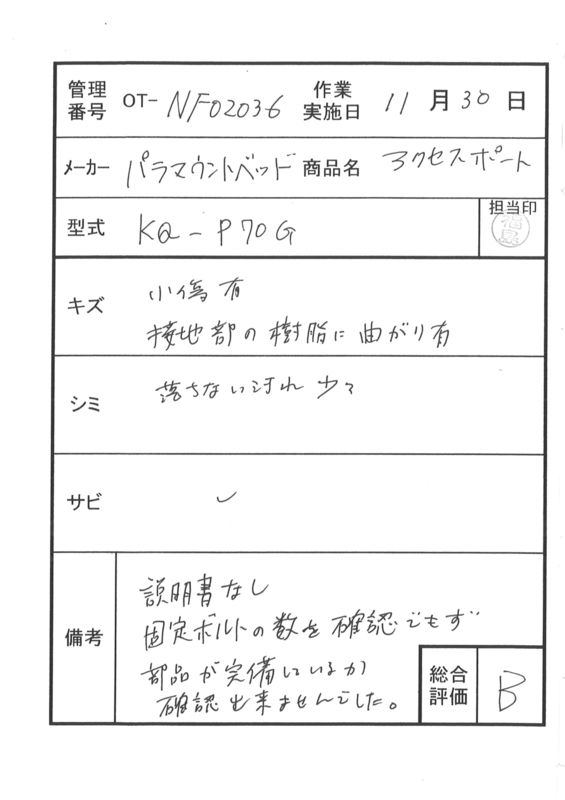 管理番号 OT- NF02036 作業実施日 11月30日
メーカー パラマウントベッド 商品名 アクセスポート
型式 KQ-P70G 担当印
キズ 小傷有
接地部の樹脂に曲がり有
シミ 落ちない汚れ少々
サビ ✓
備考 説明書なし
固定ボルトの数を確認でもず
部品が完備しているか
確認出来ませんでした。
総合評価 B